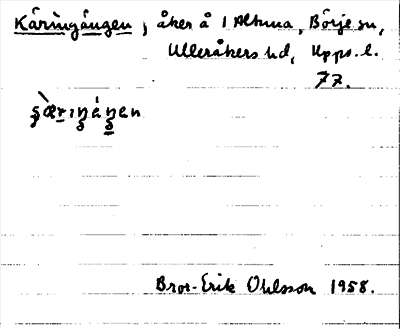 Käringängen, åker å 1 Altuna, Börje sn,
Ulleråkers hd, Upps. l.
77.
Bror-Erik Ohlsson 1958.